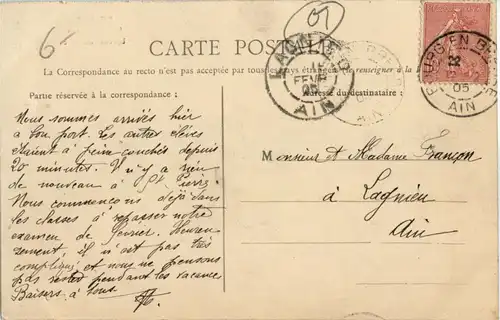 6
01
CARTE POSTALE
La Correspondance au recto n'est pas acceptée par tous les pays étrangers (Se renseigner à la
Partie réservée à la correspondance :
Adresse du destinataire
LAGNIEU
FEVR
05
AIN
BOURG EN BRESSE
05
AIN
Nous sommes arrivés hier
à bon port. Les autres élèves
étaient à peine couchés depuis
20 minutes. Il n'y a rien
de nouveau à St Pierre.
Nous commençons déjà dans
les classes à repasser notre
examen de février. Heureu
sement, il n'est pas très
compliqué et nous ne pensons
pas rester pendant les vacances
Baisers à tous.
Monsieur et Madame Françon
à Lagnieu
Ain